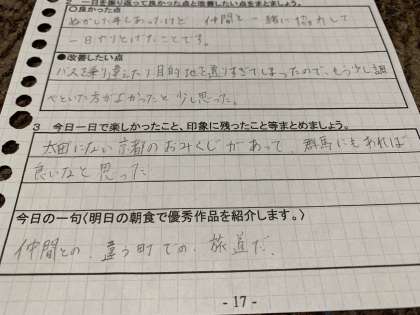 2 一日を振り返って良かった点と改善したい点をまとめましょう。
○良かった点
仲間と一緒に協力して
一日かりとげたことです。
●改善したい点
バスを乗り違えたり目的地を通りすぎてしまったので、もう少し調
べといた方がよかったと少し思った。
3 今日一日で楽しかったこと、印象に残ったこと等まとめましょう。
太田にない京都のおみくじがあって、群馬にもあれば
良いなと思った
今日の一句〈明日の朝食で優秀作品を紹介します。〉
仲間との、違う町での、旅道だ、
- 17 -